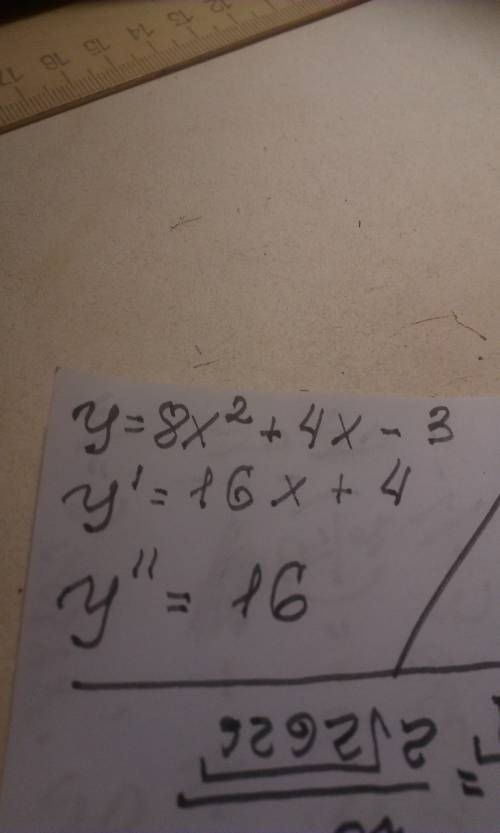 17 16 15 14 13 12
y = 8x² + 4x - 3
y' = 16x + 4
y'' = 16